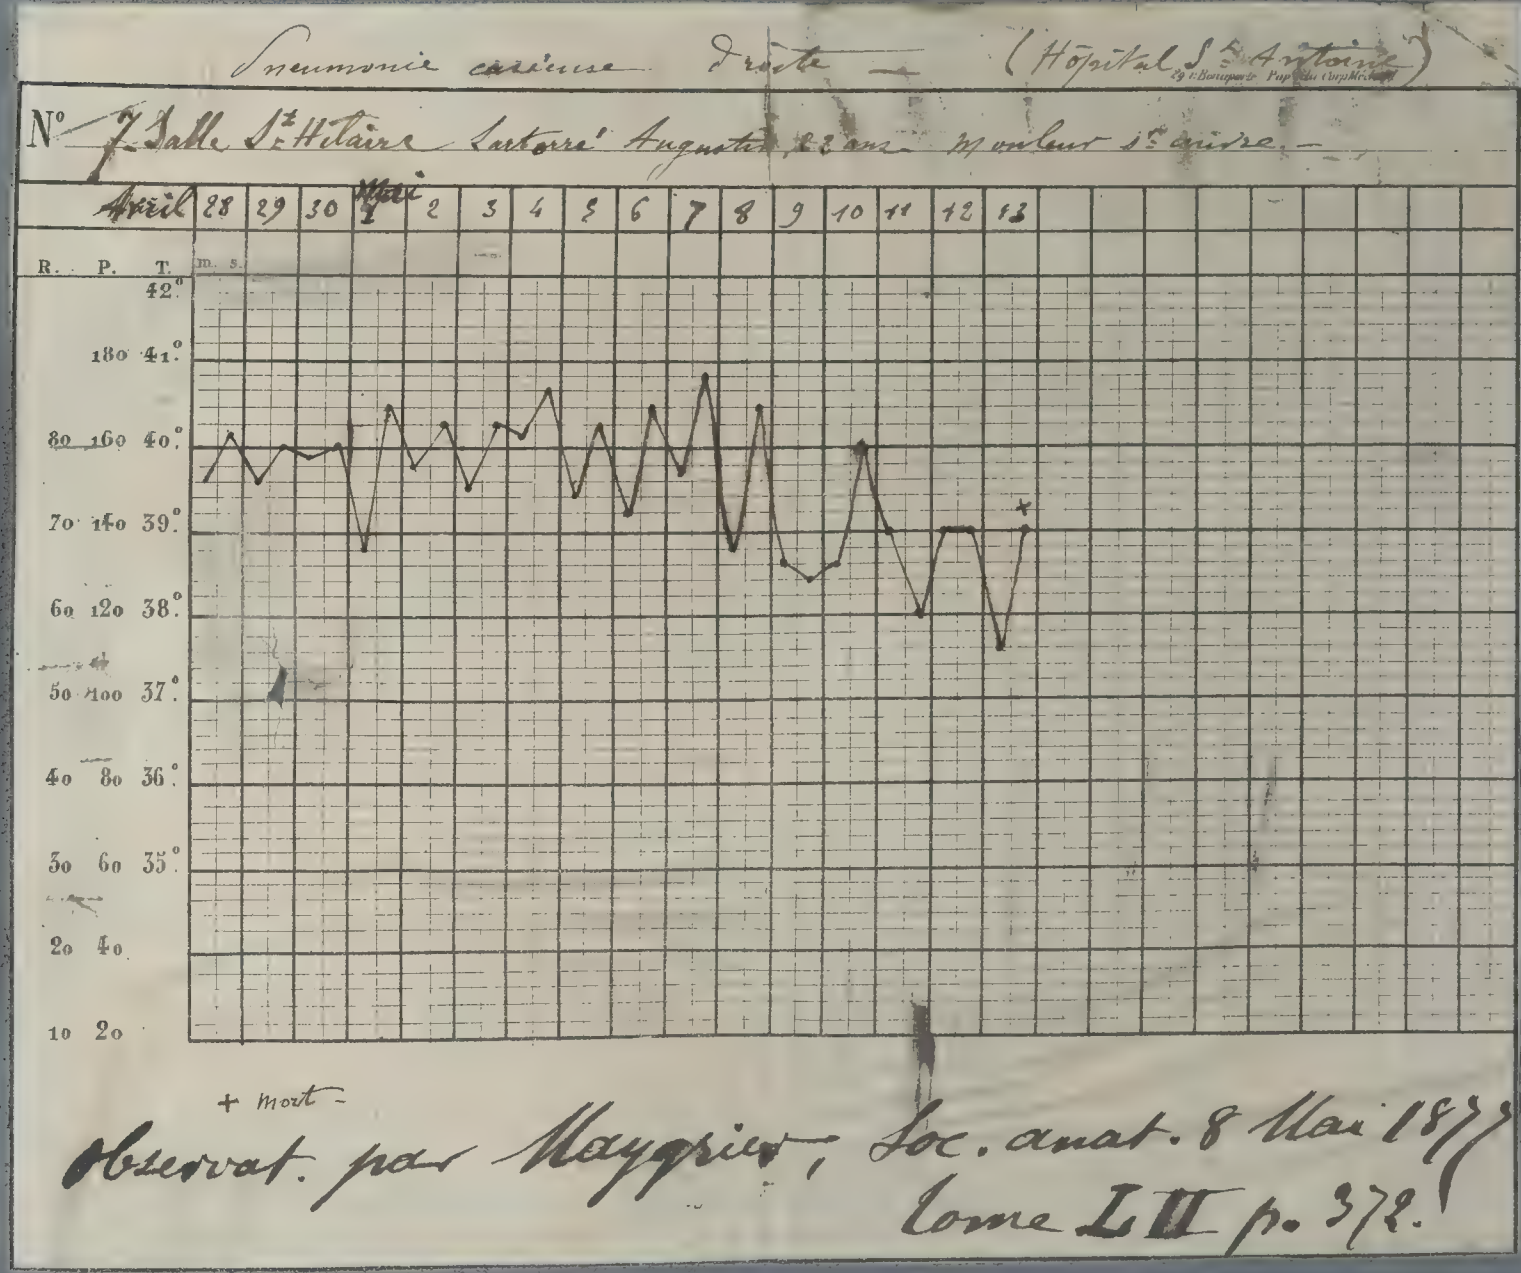 Pneumonie caséeuse droite — (Hôpital St Antoine)
Nº 7 Salle St Hilaire Augustin, 22 ans mouleur sr cuivre. —
Avril 28 29 30 Mai 1 2 3 4 5 6 7 8 9 10 11 12 13
R. P. T. m. s.
42º
180 41º
80 160 40º
70 140 39º
+
60 120 38º
50 100 37º
40 80 36º
30 60 35º
20 40
10 20
+ mort –
observat. par Maygrier, Soc. anat. 8 Mai 1877
tome LII p. 372.